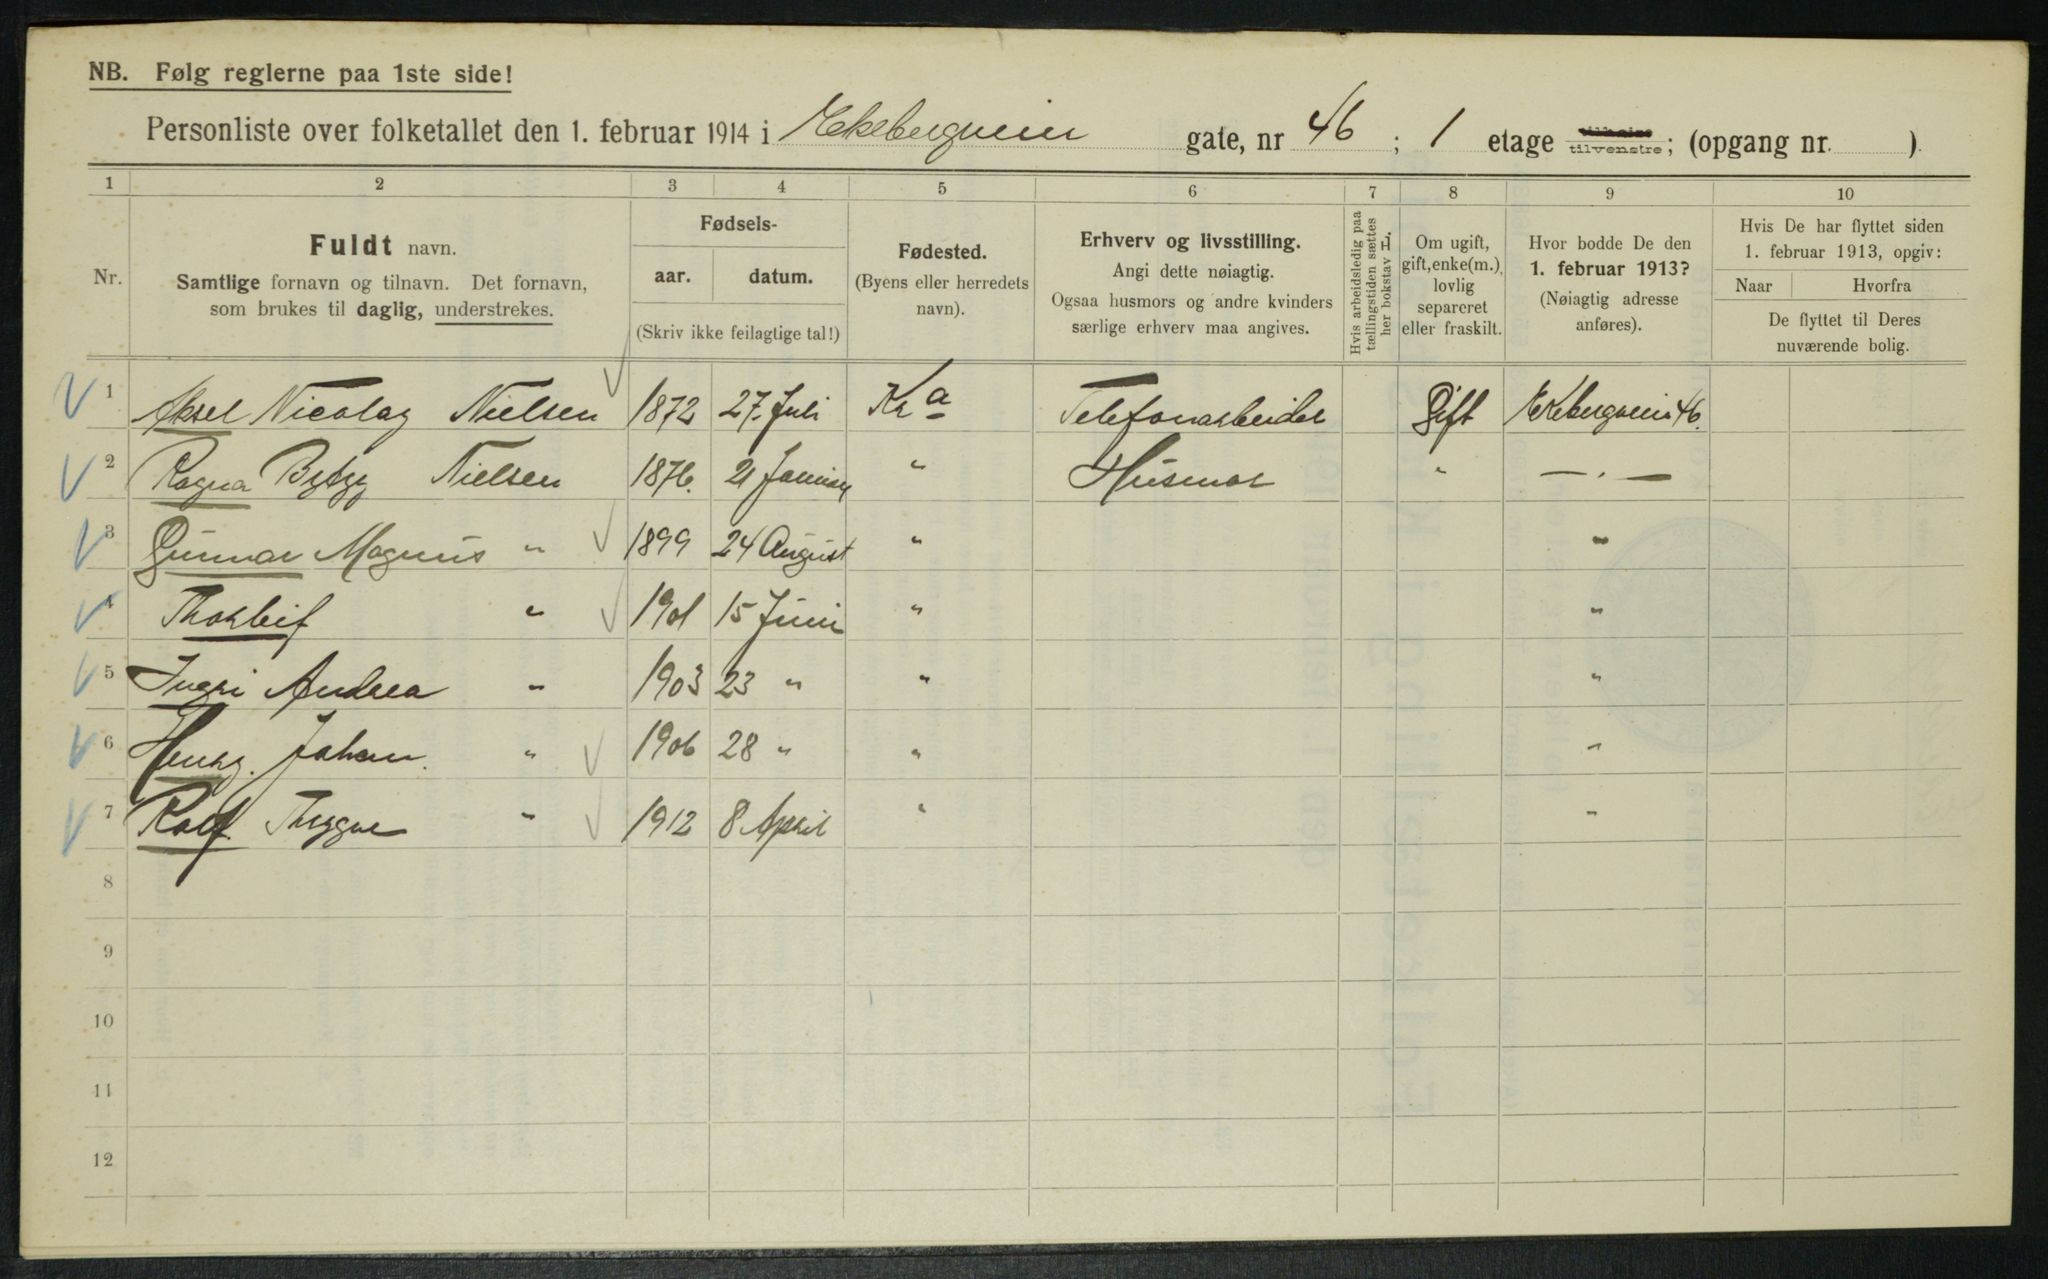 NB. Følg reglerne paa 1ste side!
Personliste over folketallet den 1. februar 1914 i Ekebergveien gate, nr 46 ; 1 etage tilhøire tilvenstre; (opgang nr. )
1 2 3 4 5 6 7 8 9 10
Nr.
Fuldt navn.
Samtlige fornavn og tilnavn. Det fornavn,
som brukes til daglig, understrekes.
Fødsels-
aar. datum.
(Skriv ikke feilagtige tal!)
Fødested.
(Byens eller herredets
navn).
Erhverv og livsstilling.
Angi dette nøiagtig.
Ogsaa husmors og andre kvinders
særlige erhverv maa angives.
Hvis arbeidsledig paa
tællingstiden sættes
her bokstav H.
Om ugift,
gift, enke(m.),
lovlig
separeret
eller fraskilt.
Hvor bodde De den
1. februar 1913?
(Nøiagtig adresse
anføres).
Hvis De har flyttet siden
1. februar 1913, opgiv:
Naar Hvorfra
De flyttet til Deres
nuværende bolig.
1 Aksel Nicolay Nielsen 1872 27. Juli Kra Telefonarbeider Gift Ekebergveien 46.
2 Ragna Nielsen 1876. 21 Januar " Husmor " — " —
3 Gunnar Magnus " 1899 24 August " "
4 Thorleif " 1901 15 Juni " "
5 Ingri Andrea " 1903 23 " " "
6 Henry. Johan. " 1906 28 " " "
7 Rolf. Thrygve " 1912 8 April " "
8
9
10
11
12